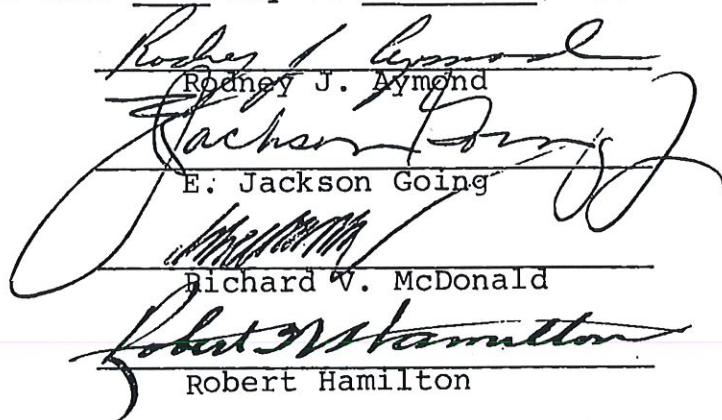 Rodney J Aymond
Rodney J. Aymond
E. Jackson Going
E. Jackson Going
Richard V. McDonald
Robert Hamilton
Robert Hamilton